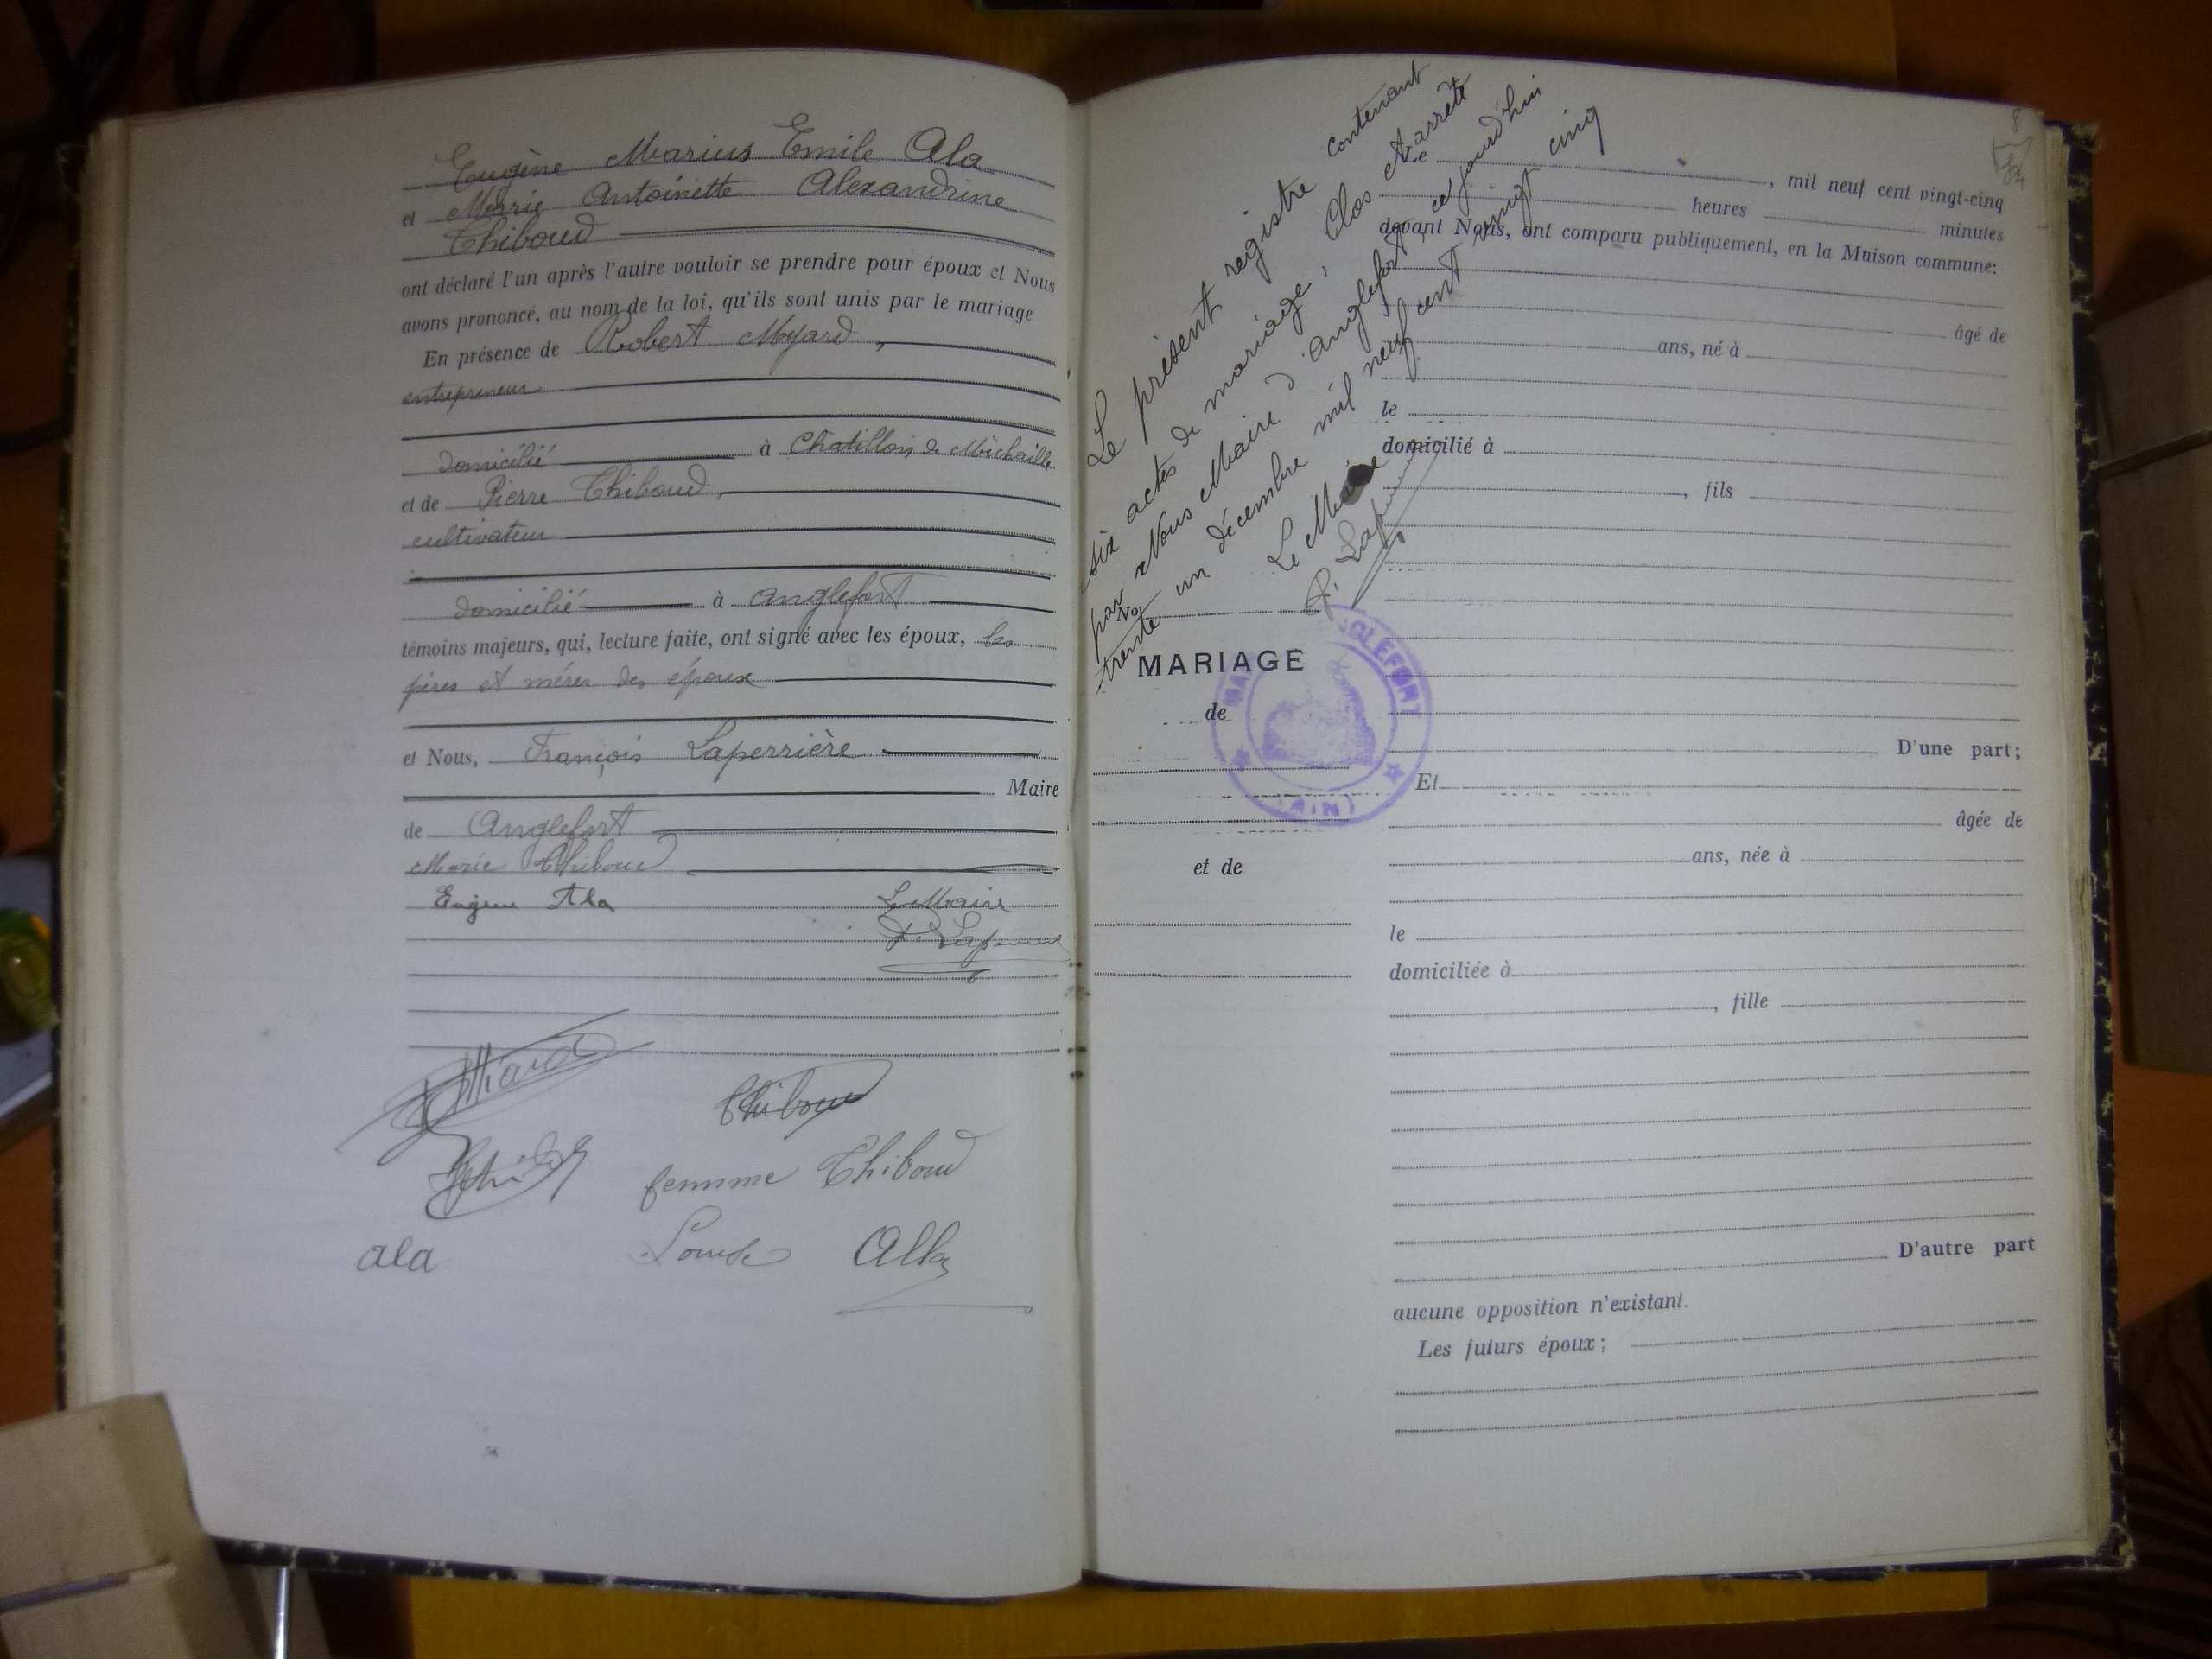 Eugène Marius Emile Ala
et Marie Antoinette Alexandrine
Thiboud
ont déclaré l'un après l'autre vouloir se prendre pour époux et Nous
avons prononcé, au nom de la loi, qu'ils sont unis par le mariage
En présence de Robert Moyard,
entrepreneur
domicilié à Chatillon de Michaille
et de Pierre Thiboud,
cultivateur
domicilié à Anglefort
témoins majeurs, qui, lecture faite, ont signé avec les époux, les
pères et mères des époux
et Nous, François Laperrière
Maire
de Anglefort
Marie Thiboud
Eugène Ala Le Maire
F. Laperrière
Thiboud
femme Thiboud
ala Louise Alla
Le présent registre contenant
six actes de mariage, Clos et arrêté
par Nous Maire d'Anglefort, ce jourd'hui
trente un décembre mil neuf cent vingt cinq
Le Maire
F. Laperrière
ANGLEFORT
(AIN)
No
MARIAGE
de
et de
8
Le , mil neuf cent vingt-cinq
heures minutes
devant Nous, ont comparu publiquement, en la Maison commune:
âgé de
ans, né à
le
domicilié à
, fils
D'une part;
Et
âgée de
ans, née à
le
domiciliée à
, fille
D'autre part
aucune opposition n'existant.
Les futurs époux;